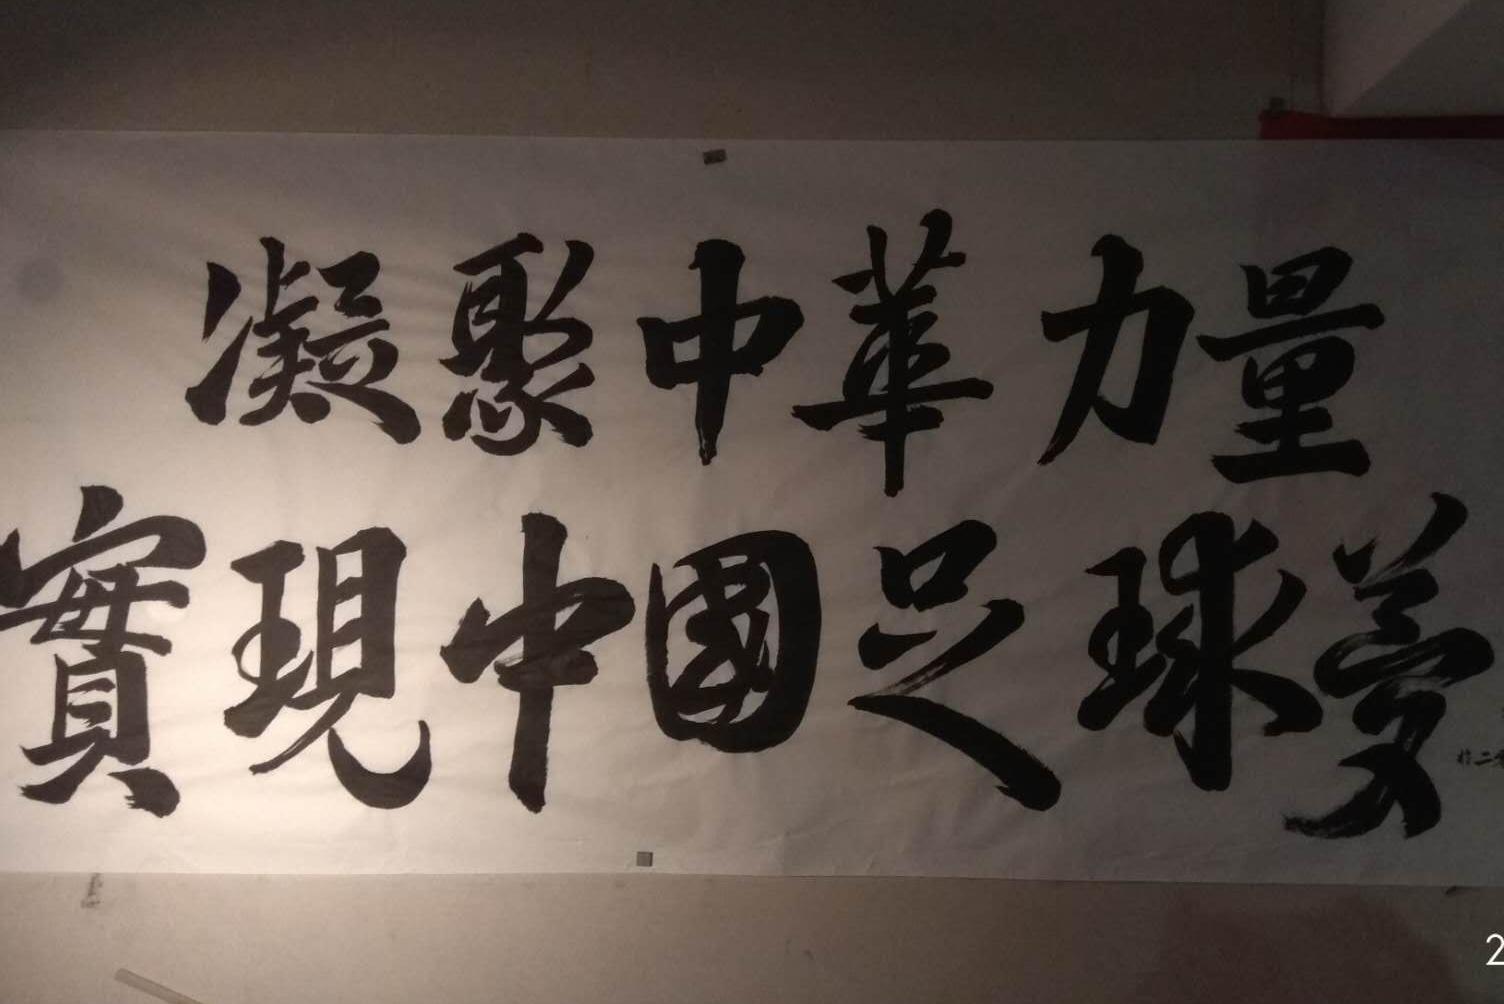 凝聚中華力量
實現中國足球夢
2